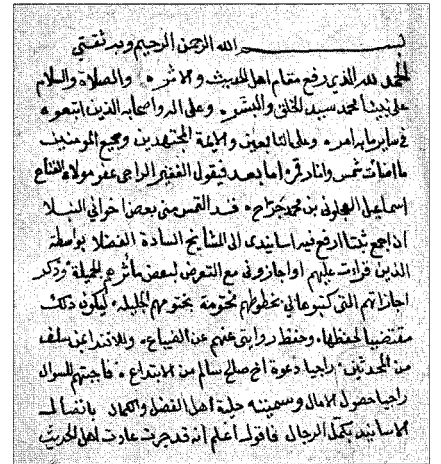 بسم الله الرحمن الرحيم وبه ثقتي
الحمد لله الذي رفع مقام اهل الحديث والاثر والصلاة والسلام
على نبينا محمد سيد الخلق والبشر وعلى اله واصحابه الذين اتبعوه
في ساير ما به امر وعلى التابعين والايمة المجتهدين وجميع المومنين
ما اضاءت شمس وانار قمر اما بعد فيقول الفقير الراجي عفو مولاه الفتاح
اسماعيل العجلوني بن محمد جراح قد التمس مني بعض اخواني النبلا
ان اجمع ثبتا ارفع فيه اسانيدي الى المشايخ السادة الفضلا بواسطة
الذين قرات عليهم او اجازوني مع التعرض لبعض ماثرهم الجميلة وذكر
اجازاتهم التي كتبوها لي بخطوطهم مختومة بختومهم الجليلة ليكون ذلك
مقتضيا لحفظها وحفظ روايتي عنهم عن الضياع وللاقتدا بمن سلف
من المحدثين راجيا دعوة اخ صالح سالم من الابتداع فاجبتهم للسوال
راجيا حصول الامال وسميته حلية اهل الفضل والكمال باتصال
الاسانيد بكمل الرجال فاقول اعلم انه قد جرت عادت اهل الحديث